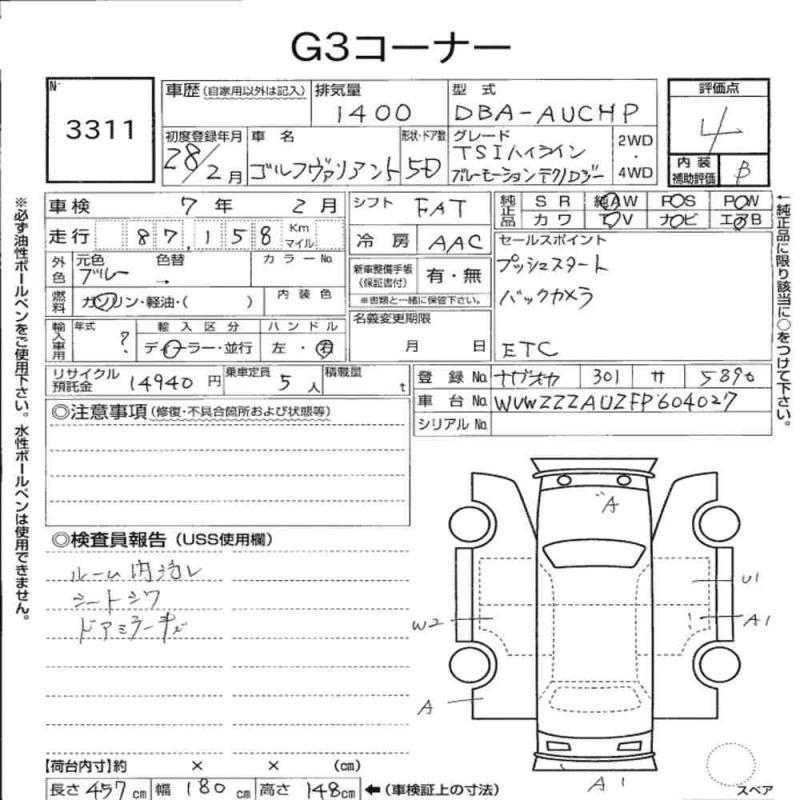 G3コーナー
No
3311
車歴 (自家用以外は記入)
排気量
1400
型式
DBA-AUCHP
評価点
4
初度登録年月
28/2月
車名
ゴルフヴァリアント
形状・ドア数
5D
グレード
TSIハイライン
ブルーモーションテクノロジー
2WD
・
4WD
内装
補助評価
B
車検 7年 2月
シフト FAT
純正品
SR 純AW PS PW
カワ TV ナビ エアB
走行 87,158 Km マイル
冷房 AAC
セールスポイント
プッシュスタート
バックカメラ
ETC
外色
元色 ブルー
色替 →
カラーNo
新車整備手帳
(保証書付)
有・無
※書類と一緒に保管下さい。
燃料
ガソリン・軽油・( )
内装色
名義変更期限
月 日
輸入車用
年式 ?
輸入区分
ディーラー・並行
ハンドル
左・右
リサイクル
預託金
14940円
乗車定員 5人
積載量 t
登録No. 301 サ 5890
車台No. WVWZZZAUZFP604027
シリアルNo.
◎注意事項 (修復・不具合箇所および状態等)
◎検査員報告 (USS使用欄)
ルーム内汚レ
シートシワ
ドアミラーキズ
A
U1
W2
A1
A
A1
スペア
【荷台内寸】約 × × (cm)
長さ 457cm 幅 180cm 高さ 148cm ←(車検証上の寸法)
※必ず油性ボールペンをご使用下さい。水性ボールペンは使用できません。
←純正品に限り該当に○をつけて下さい。